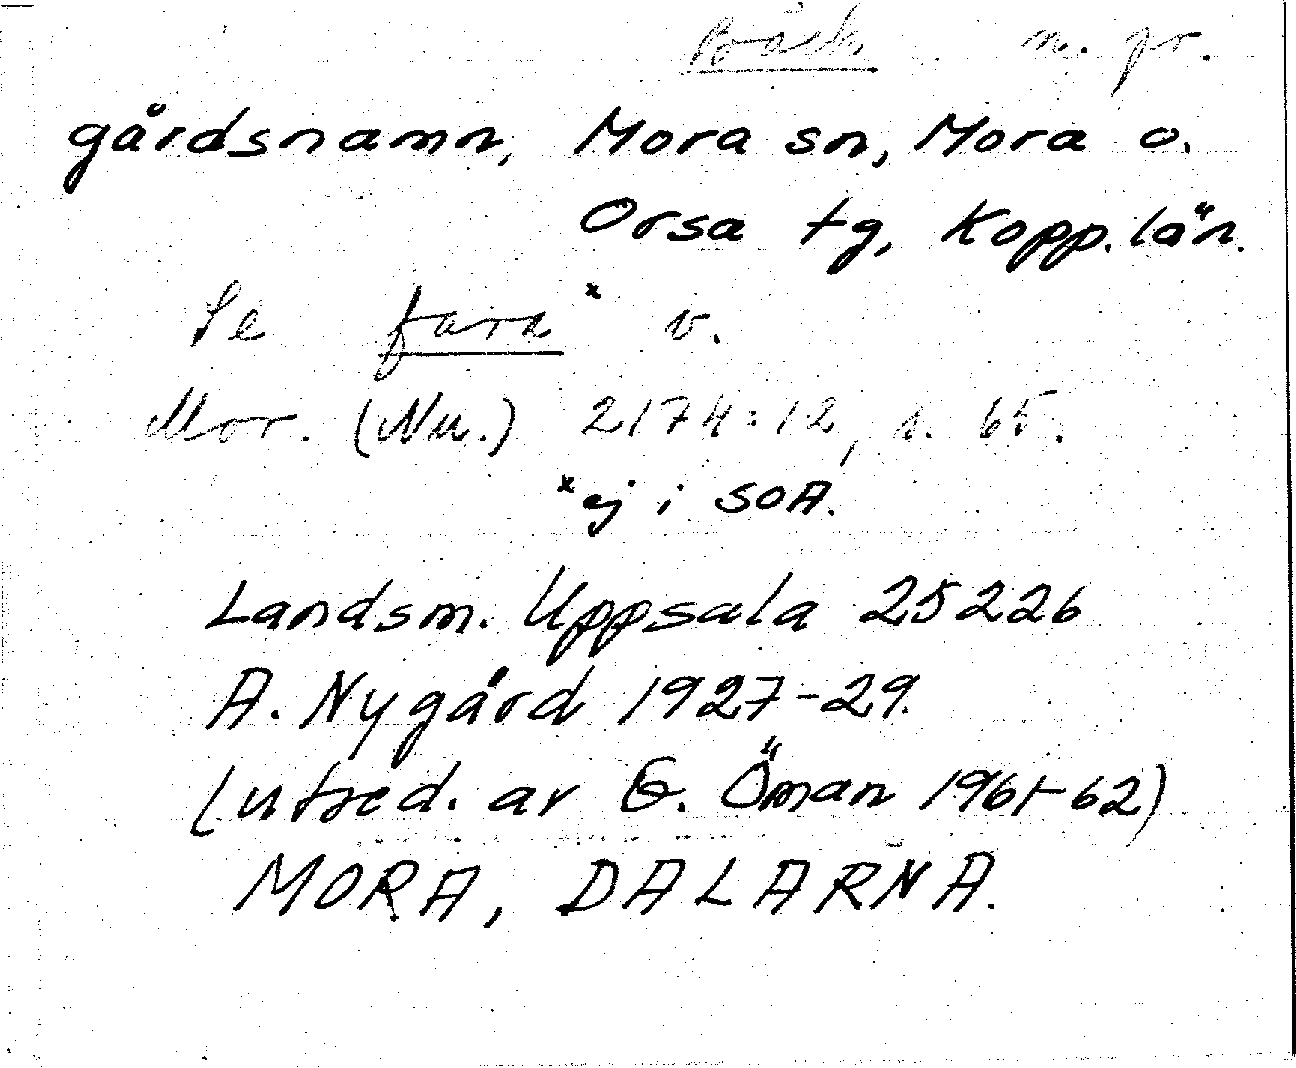 Bäck n. pr.
gårdsnamn, Mora sn, Mora o.
Orsa tg, Kopp. län.
Se fara x v.
Mor. (Nu.) 2174:12, s. 65.
x ej i SOA.
Landsm. Uppsala 25226
A. Nygård 1927-29.
(utred. av G. Öman 1961-62)
MORA, DALARNA.